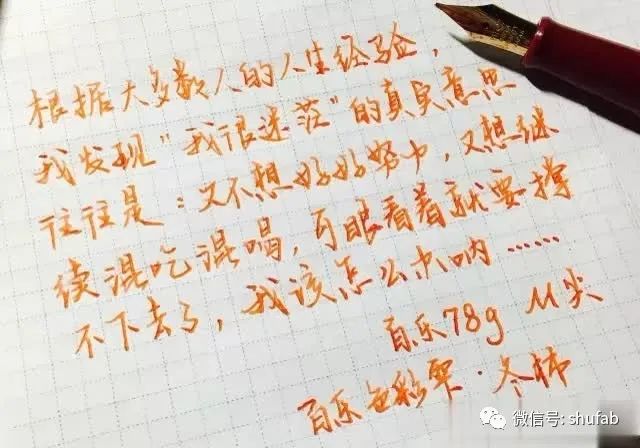 根据大多数人的人生经验，
我发现"我很迷茫"的真实意思
往往是：又不想好好努力，又想继
续混吃混喝，可眼看着就要撑
不下去了，我该怎么办呐……
百乐78g M尖
百乐色彩雫·冬柿
微信号: shufab